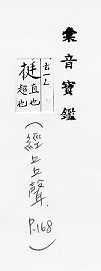 彙音寶鑑
挺
直也
超也
(經上上聲
P.168)